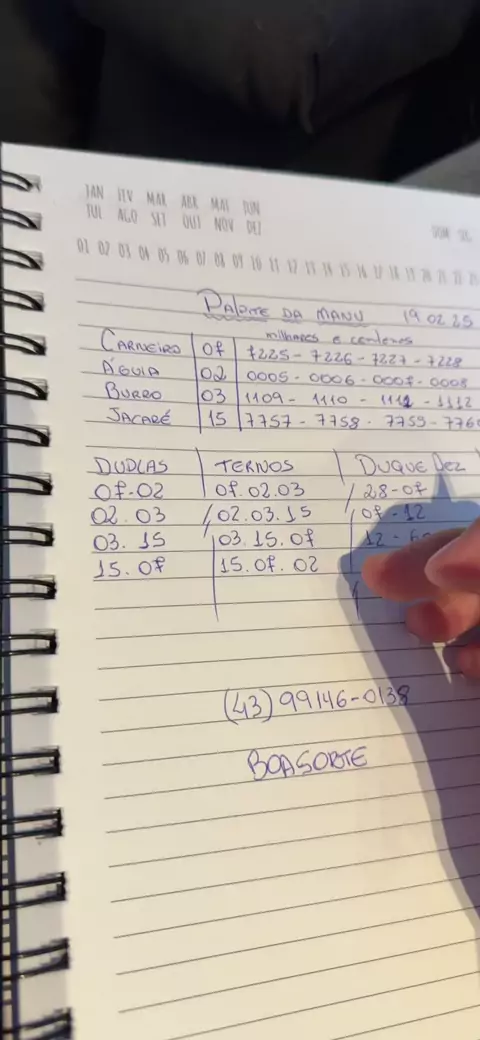 JAN FEV MAR ABR MAI JUN
JUL AGO SET OUT NOV DEZ
DOM SEG
01 02 03 04 05 06 07 08 09 10 11 12 13 14 15 16 17 18 19 20 21 22 23
PALPITE DA MANU 19 02 25
milhares e centenas
CARNEIRO 07 7225 - 7226 - 7227 - 7228
ÁGUIA 02 0005 - 0006 - 0007 - 0008
BURRO 03 1109 - 1110 - 1111 - 1112
JACARÉ 15 7757 - 7758 - 7759 - 7760
DUPLAS TERNOS DUQUE DEZ
07-02 07.02.03 28-07
02.03 02.03.15 07-12
03.15 03.15.07 12-
15.07 15.07.02
(43) 99146-0138
BOA SORTE